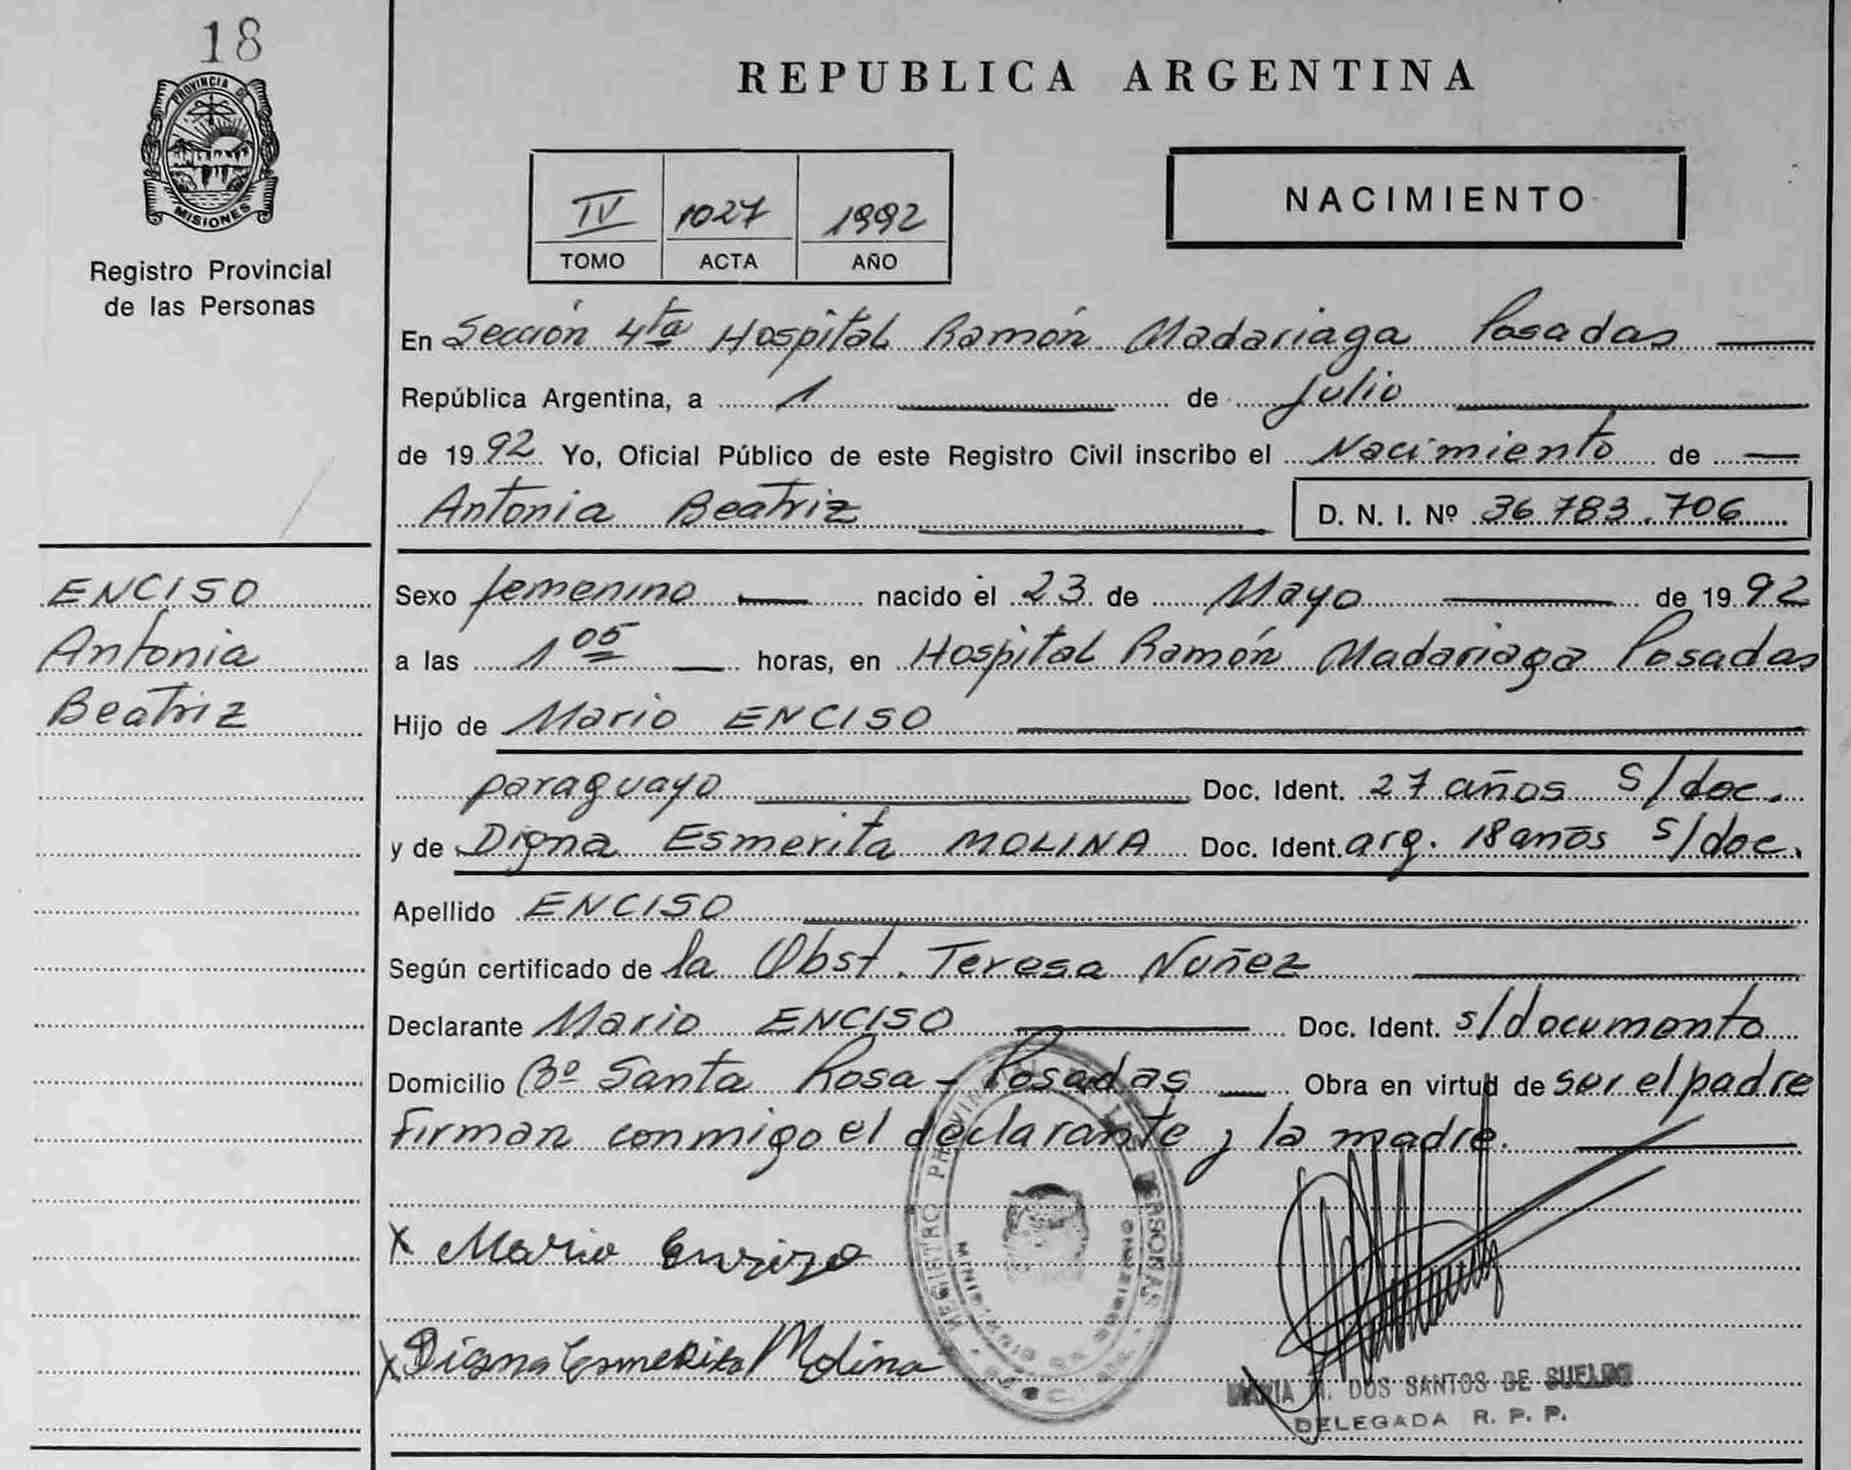 18
PROVINCIA DE
MISIONES
Registro Provincial
de las Personas
ENCISO
Antonia
Beatriz
REPUBLICA ARGENTINA
IV 1027 1992
TOMO ACTA AÑO
NACIMIENTO
En Sección 4ta Hospital Ramón Madariaga Posadas
República Argentina, a 1 de Julio
de 1992 Yo, Oficial Público de este Registro Civil inscribo el Nacimiento de
Antonia Beatriz D. N. I. Nº 36.783.706
Sexo femenino nacido el 23 de Mayo de 1992
a las 1 05 horas, en Hospital Ramón Madariaga Posadas
Hijo de Mario ENCISO
paraguayo Doc. Ident. 27 años S/doc.
y de Digna Esmerita MOLINA Doc. Ident. arg. 18 años s/doc.
Apellido ENCISO
Según certificado de la Obst. Teresa Nuñez
Declarante Mario ENCISO Doc. Ident. s/documento
Domicilio Bº Santa Rosa - Posadas Obra en virtud de ser el padre
Firman conmigo el declarante y la madre.
REGISTRO PROVINCIAL DE LAS PERSONAS
X Mario Enzizo
X Digna Esmerita Molina
MARIA M. DOS SANTOS DE SUELDO
DELEGADA R. P. P.